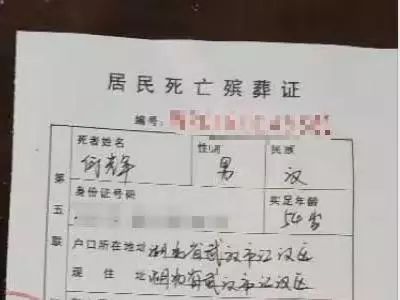 居民死亡殡葬证
编号:
死者姓名 性别 民族
何辉 男 汉
身份证号码 实足年龄
54岁
第五联
户口所在地 湖南省武汉市江汉区
现住址 湖南省武汉市江汉区